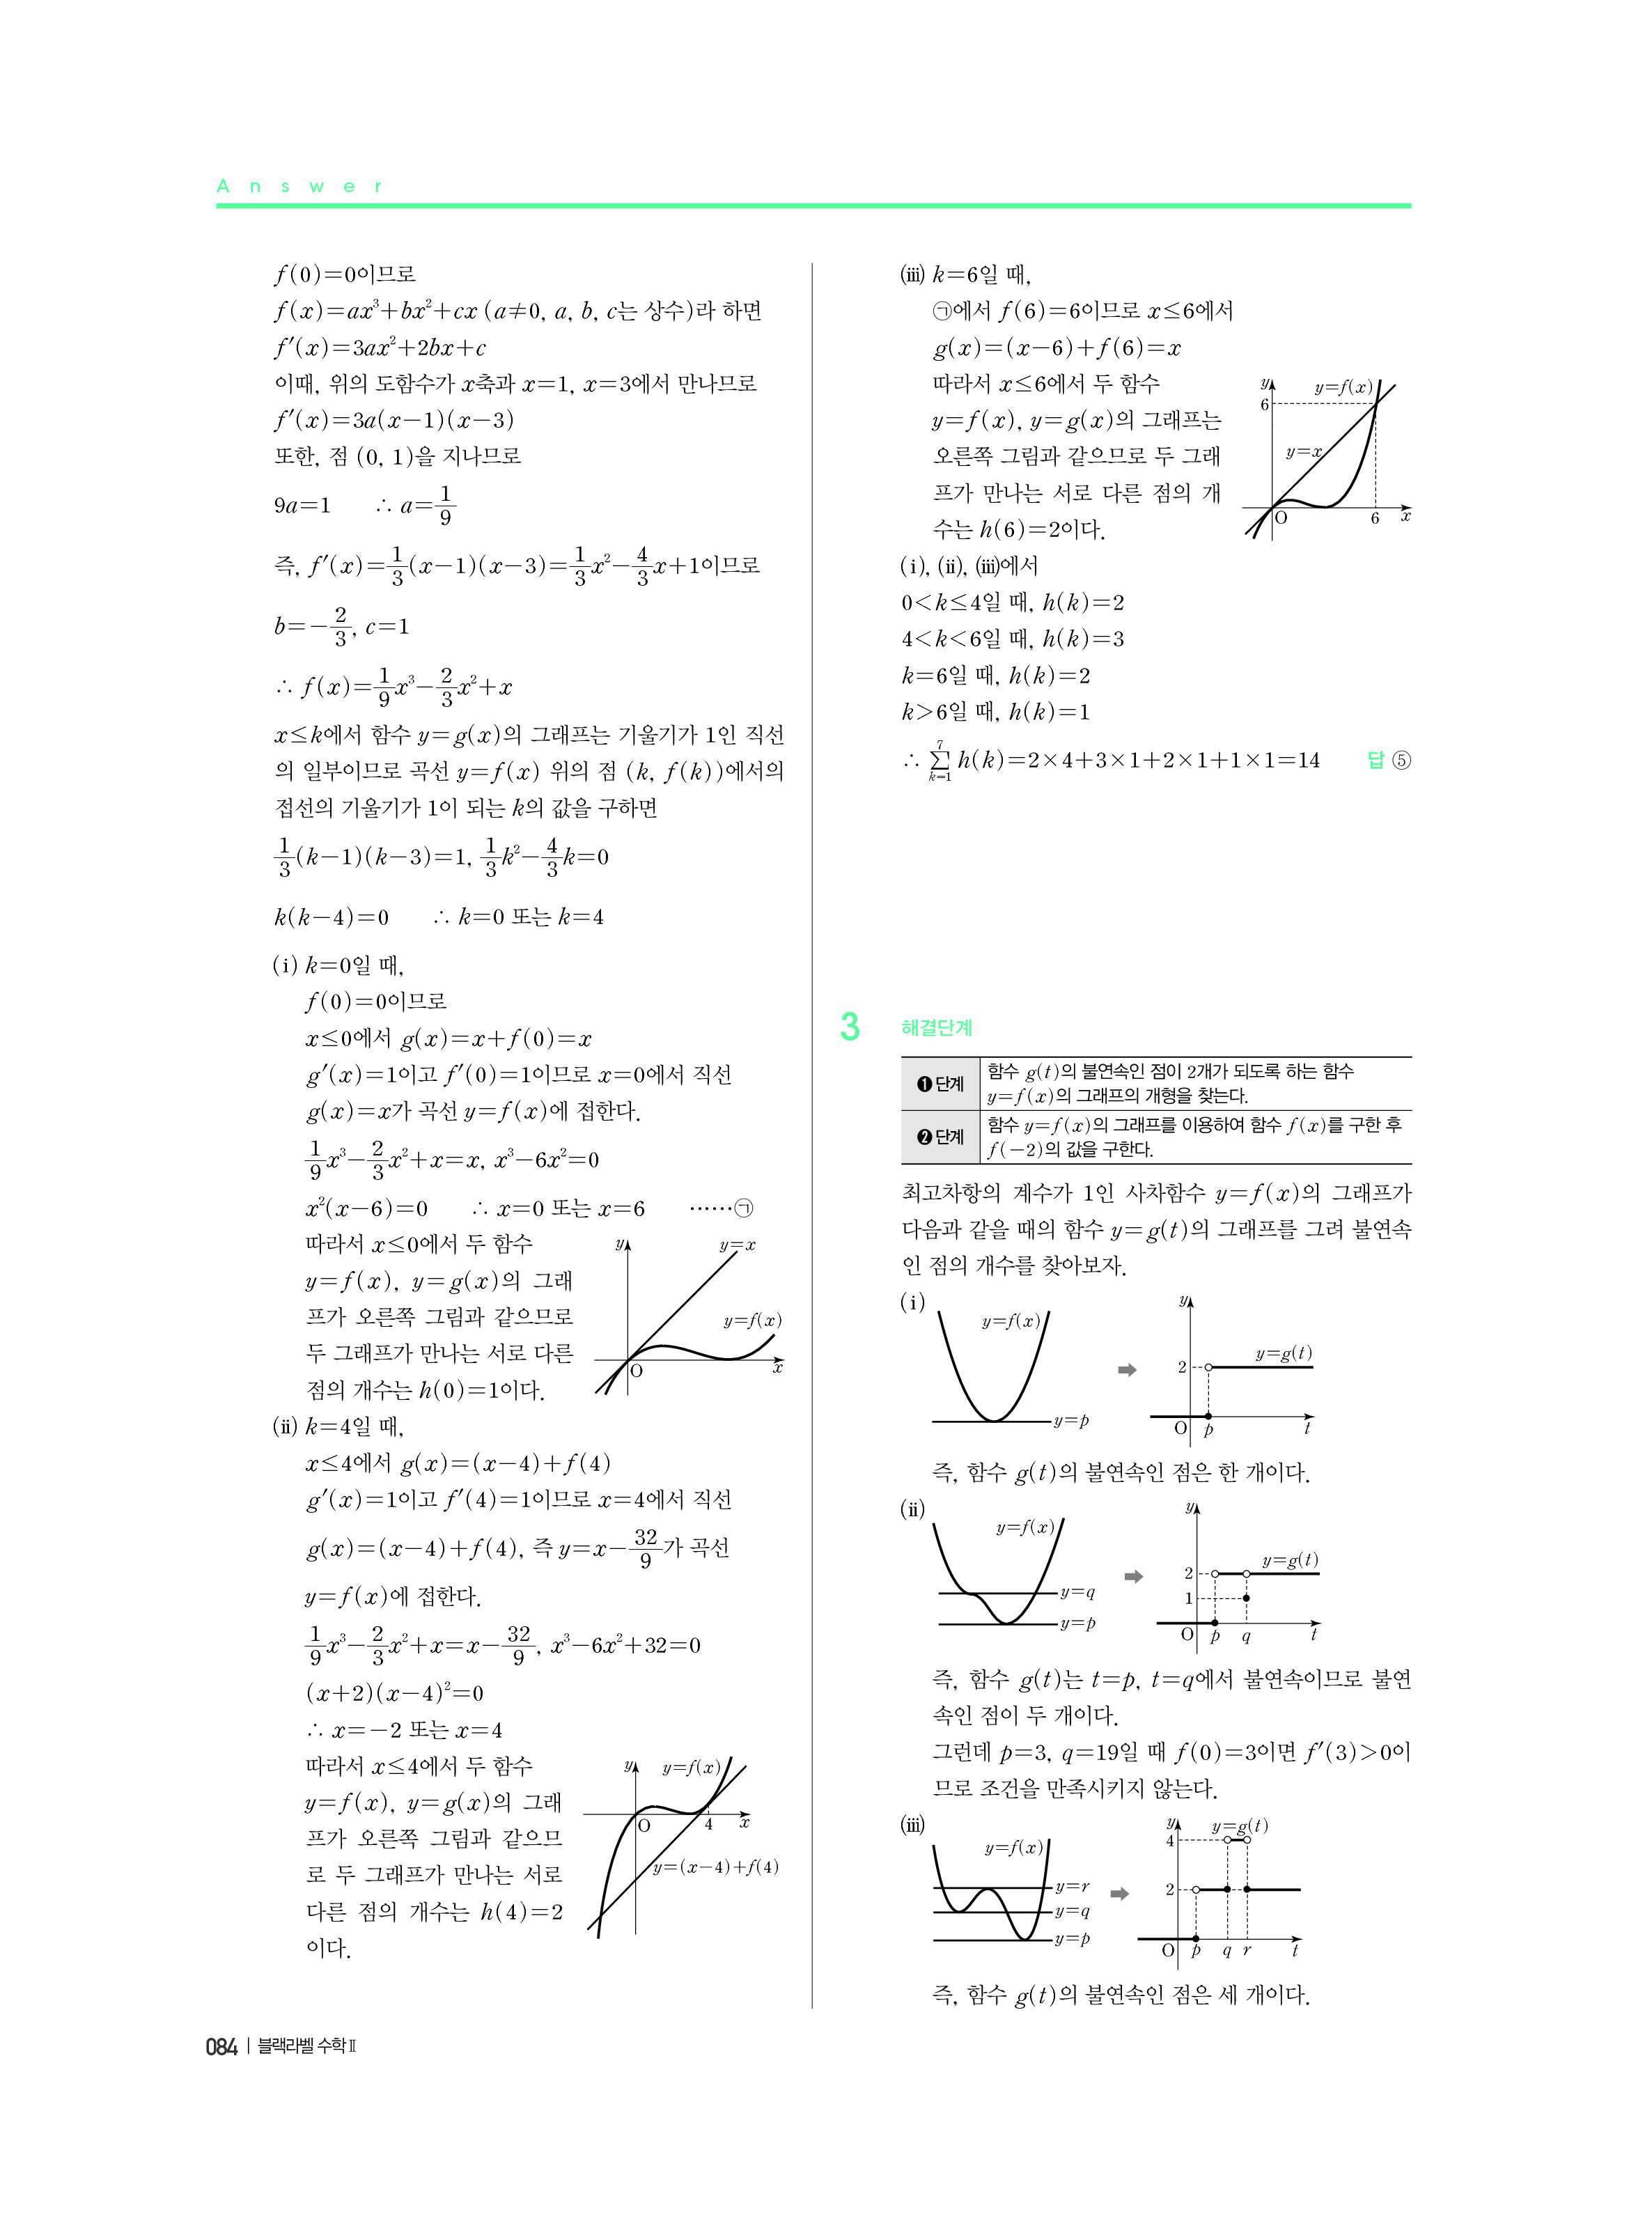 A n s w e r
f(0)=0이므로
f(x)=ax³+bx²+cx (a≠0, a, b, c는 상수)라 하면
f′(x)=3ax²+2bx+c
이때, 위의 도함수가 x축과 x=1, x=3에서 만나므로
f′(x)=3a(x-1)(x-3)
또한, 점 (0, 1)을 지나므로
9a=1 ∴ a=1/9
즉, f′(x)=1/3(x-1)(x-3)=1/3x²-4/3x+1이므로
b=-2/3, c=1
∴ f(x)=1/9x³-2/3x²+x
x≤k에서 함수 y=g(x)의 그래프는 기울기가 1인 직선
의 일부이므로 곡선 y=f(x) 위의 점 (k, f(k))에서의
접선의 기울기가 1이 되는 k의 값을 구하면
1/3(k-1)(k-3)=1, 1/3k²-4/3k=0
k(k-4)=0 ∴ k=0 또는 k=4
(i) k=0일 때,
f(0)=0이므로
x≤0에서 g(x)=x+f(0)=x
g′(x)=1이고 f′(0)=1이므로 x=0에서 직선
g(x)=x가 곡선 y=f(x)에 접한다.
1/9x³-2/3x²+x=x, x³-6x²=0
x²(x-6)=0 ∴ x=0 또는 x=6 ……㉠
따라서 x≤0에서 두 함수
y=f(x), y=g(x)의 그래
프가 오른쪽 그림과 같으므로
두 그래프가 만나는 서로 다른
점의 개수는 h(0)=1이다.
y
y=x
y=f(x)
O
x
(ii) k=4일 때,
x≤4에서 g(x)=(x-4)+f(4)
g′(x)=1이고 f′(4)=1이므로 x=4에서 직선
g(x)=(x-4)+f(4), 즉 y=x-32/9가 곡선
y=f(x)에 접한다.
1/9x³-2/3x²+x=x-32/9, x³-6x²+32=0
(x+2)(x-4)²=0
∴ x=-2 또는 x=4
따라서 x≤4에서 두 함수
y=f(x), y=g(x)의 그래
프가 오른쪽 그림과 같으므
로 두 그래프가 만나는 서로
다른 점의 개수는 h(4)=2
이다.
y
y=f(x)
O
4
x
y=(x-4)+f(4)
(iii) k=6일 때,
㉠에서 f(6)=6이므로 x≤6에서
g(x)=(x-6)+f(6)=x
따라서 x≤6에서 두 함수
y=f(x), y=g(x)의 그래프는
오른쪽 그림과 같으므로 두 그래
프가 만나는 서로 다른 점의 개
수는 h(6)=2이다.
y
y=f(x)
6
y=x
O
6
x
(i), (ii), (iii)에서
0<k≤4일 때, h(k)=2
4<k<6일 때, h(k)=3
k=6일 때, h(k)=2
k>6일 때, h(k)=1
∴ ∑_{k=1}^{7} h(k)=2×4+3×1+2×1+1×1=14 답 ⑤
3 해결단계
❶ 단계 함수 g(t)의 불연속인 점이 2개가 되도록 하는 함수
y=f(x)의 그래프의 개형을 찾는다.
❷ 단계 함수 y=f(x)의 그래프를 이용하여 함수 f(x)를 구한 후
f(-2)의 값을 구한다.
최고차항의 계수가 1인 사차함수 y=f(x)의 그래프가
다음과 같을 때의 함수 y=g(t)의 그래프를 그려 불연속
인 점의 개수를 찾아보자.
(i)
y=f(x)
y=p
y
2
y=g(t)
O
p
t
즉, 함수 g(t)의 불연속인 점은 한 개이다.
(ii)
y=f(x)
y=q
y=p
y
2
y=g(t)
1
O
p
q
t
즉, 함수 g(t)는 t=p, t=q에서 불연속이므로 불연
속인 점이 두 개이다.
그런데 p=3, q=19일 때 f(0)=3이면 f′(3)>0이
므로 조건을 만족시키지 않는다.
(iii)
y=f(x)
y=r
y=q
y=p
y
y=g(t)
4
2
O
p
q
r
t
즉, 함수 g(t)의 불연속인 점은 세 개이다.
084 | 블랙라벨 수학Ⅱ